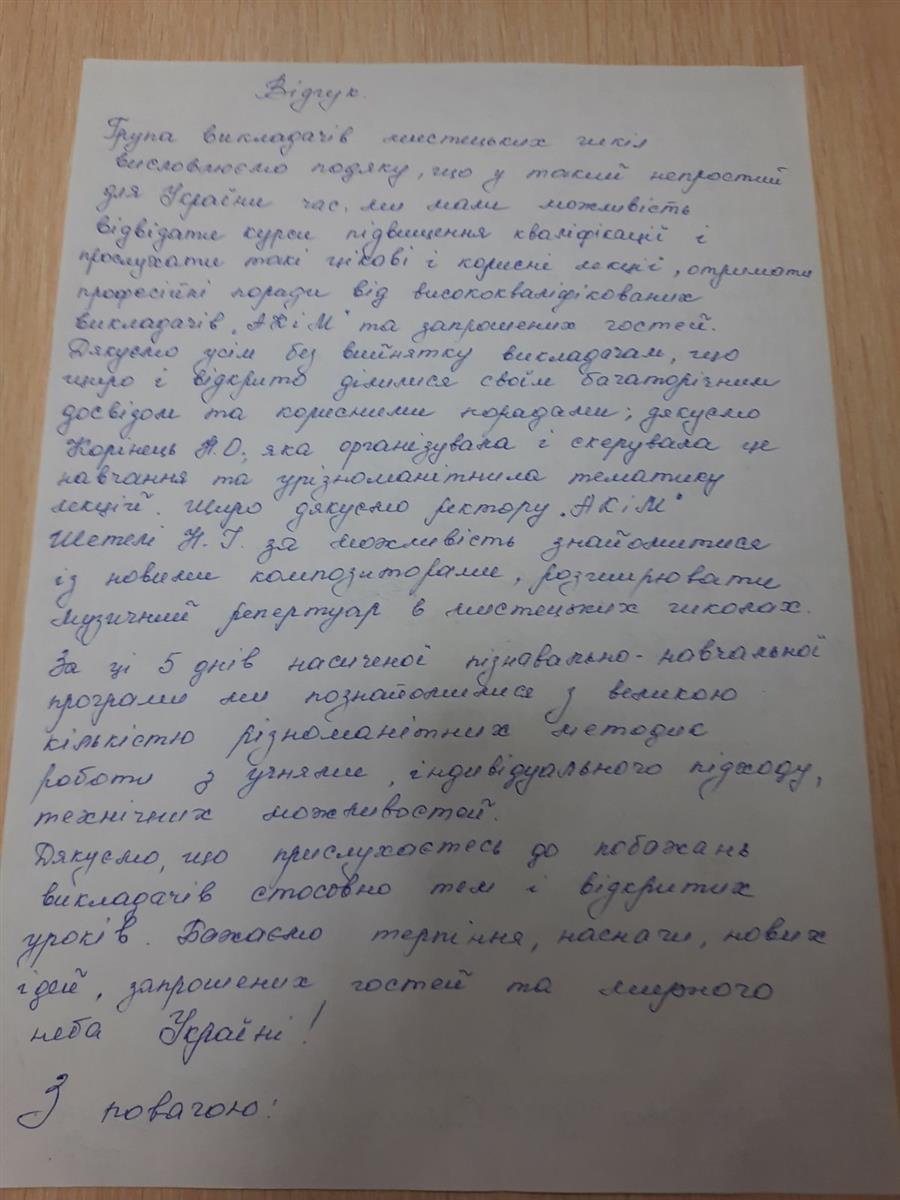 Відгук.
Група викладачів мистецьких шкіл
висловлюємо подяку, що у такий непростий
для України час, ми мали можливість
відвідати курси підвищення кваліфікації і
прослухати такі цікові і корисні лекції, отримати
професійні поради від висококваліфікованих
викладачів „АКіМ" та запрошених гостей.
Дякуємо усім без вийнятку викладачам, що
щиро і відкрито ділилися своїм багаторічним
досвідом та корисними порадами; дякуємо
Корінець А.О; яка організувала і скерувала це
навчання та урізноманітнила тематику
лекцій. Щиро дякуємо ректору „АКіМ"
Шетелі Н.І. за можливість знайомитися
із новими композиторами, розширювати
музичний репертуар в мистецьких школах.
За ці 5 днів насиченої пізнавально-навчальної
програми ми познайомилися з великою
кількістю різноманітних методик
роботи з учнями, індивідуального підходу,
технічних можливостей.
Дякуємо, що прислухаєтесь до побажань
викладачів стосовно тем і відкритих
уроків. Бажаємо терпіння, наснаги, нових
ідей, запрошених гостей та мирного
неба Україні!
З повагою: